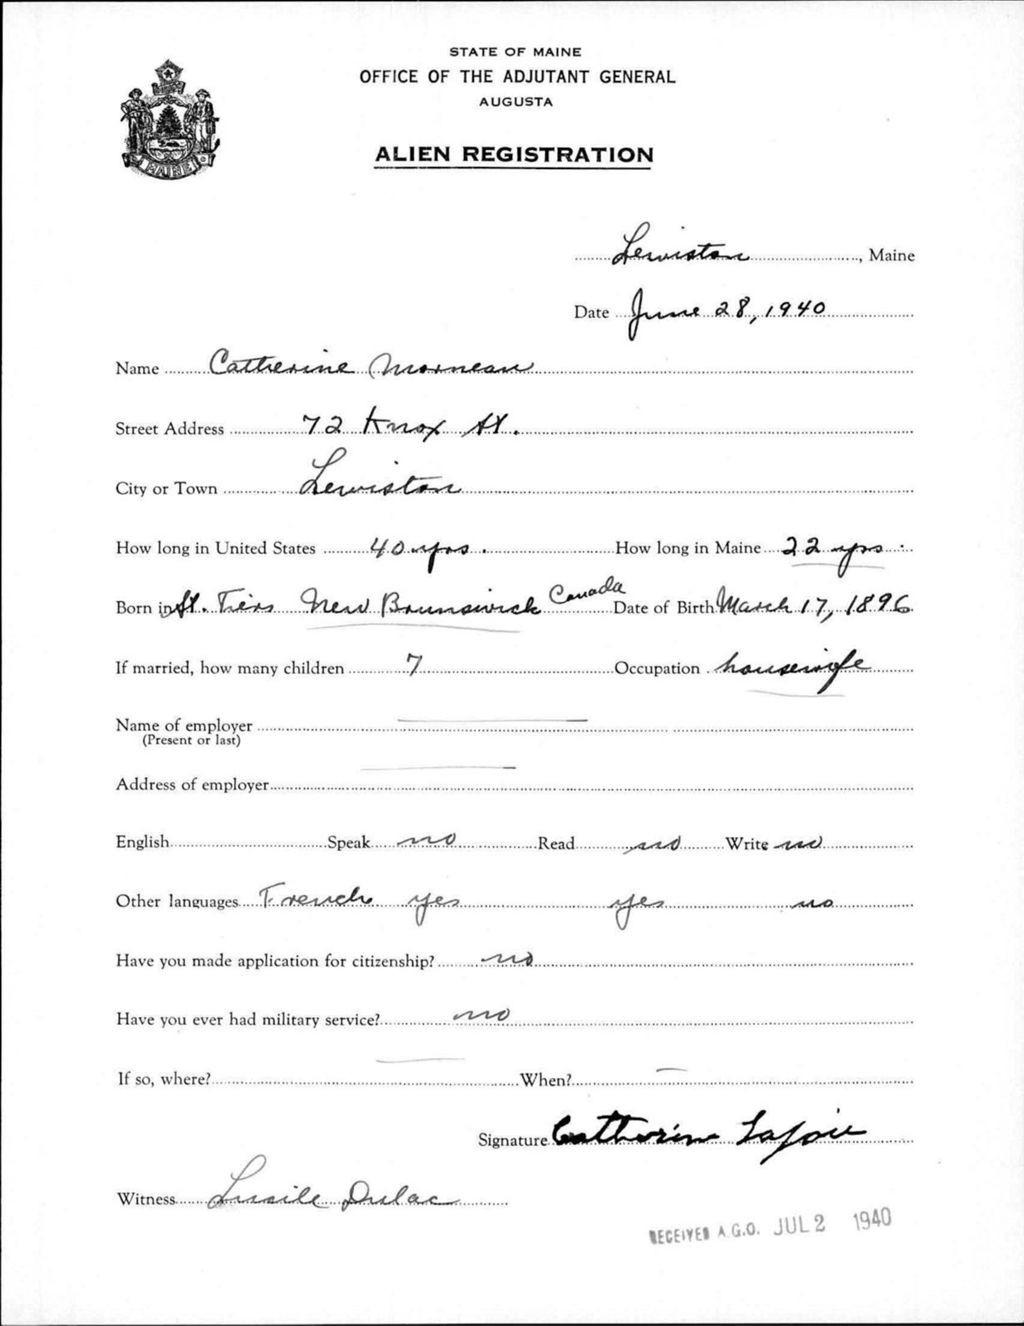 STATE OF MAINE
OFFICE OF THE ADJUTANT GENERAL
AUGUSTA
ALIEN REGISTRATION
MAINE
Lewiston, Maine
Date June 28, 1940
Name Catherine Morneau
Street Address 72 Knox St.
City or Town Lewiston
How long in United States 40 yrs. How long in Maine 22 yrs.
Born in St. Tiers New Brunswick Canada Date of Birth March 17, 1896
If married, how many children 7 Occupation housewife
Name of employer
(Present or last)
Address of employer
English Speak no Read no Write no
Other languages French yes yes no
Have you made application for citizenship? no
Have you ever had military service? no
If so, where? When?
Signature Catherine Lajoie
Witness Lucile Dulac
RECEIVED A.G.O. JUL 2 1940